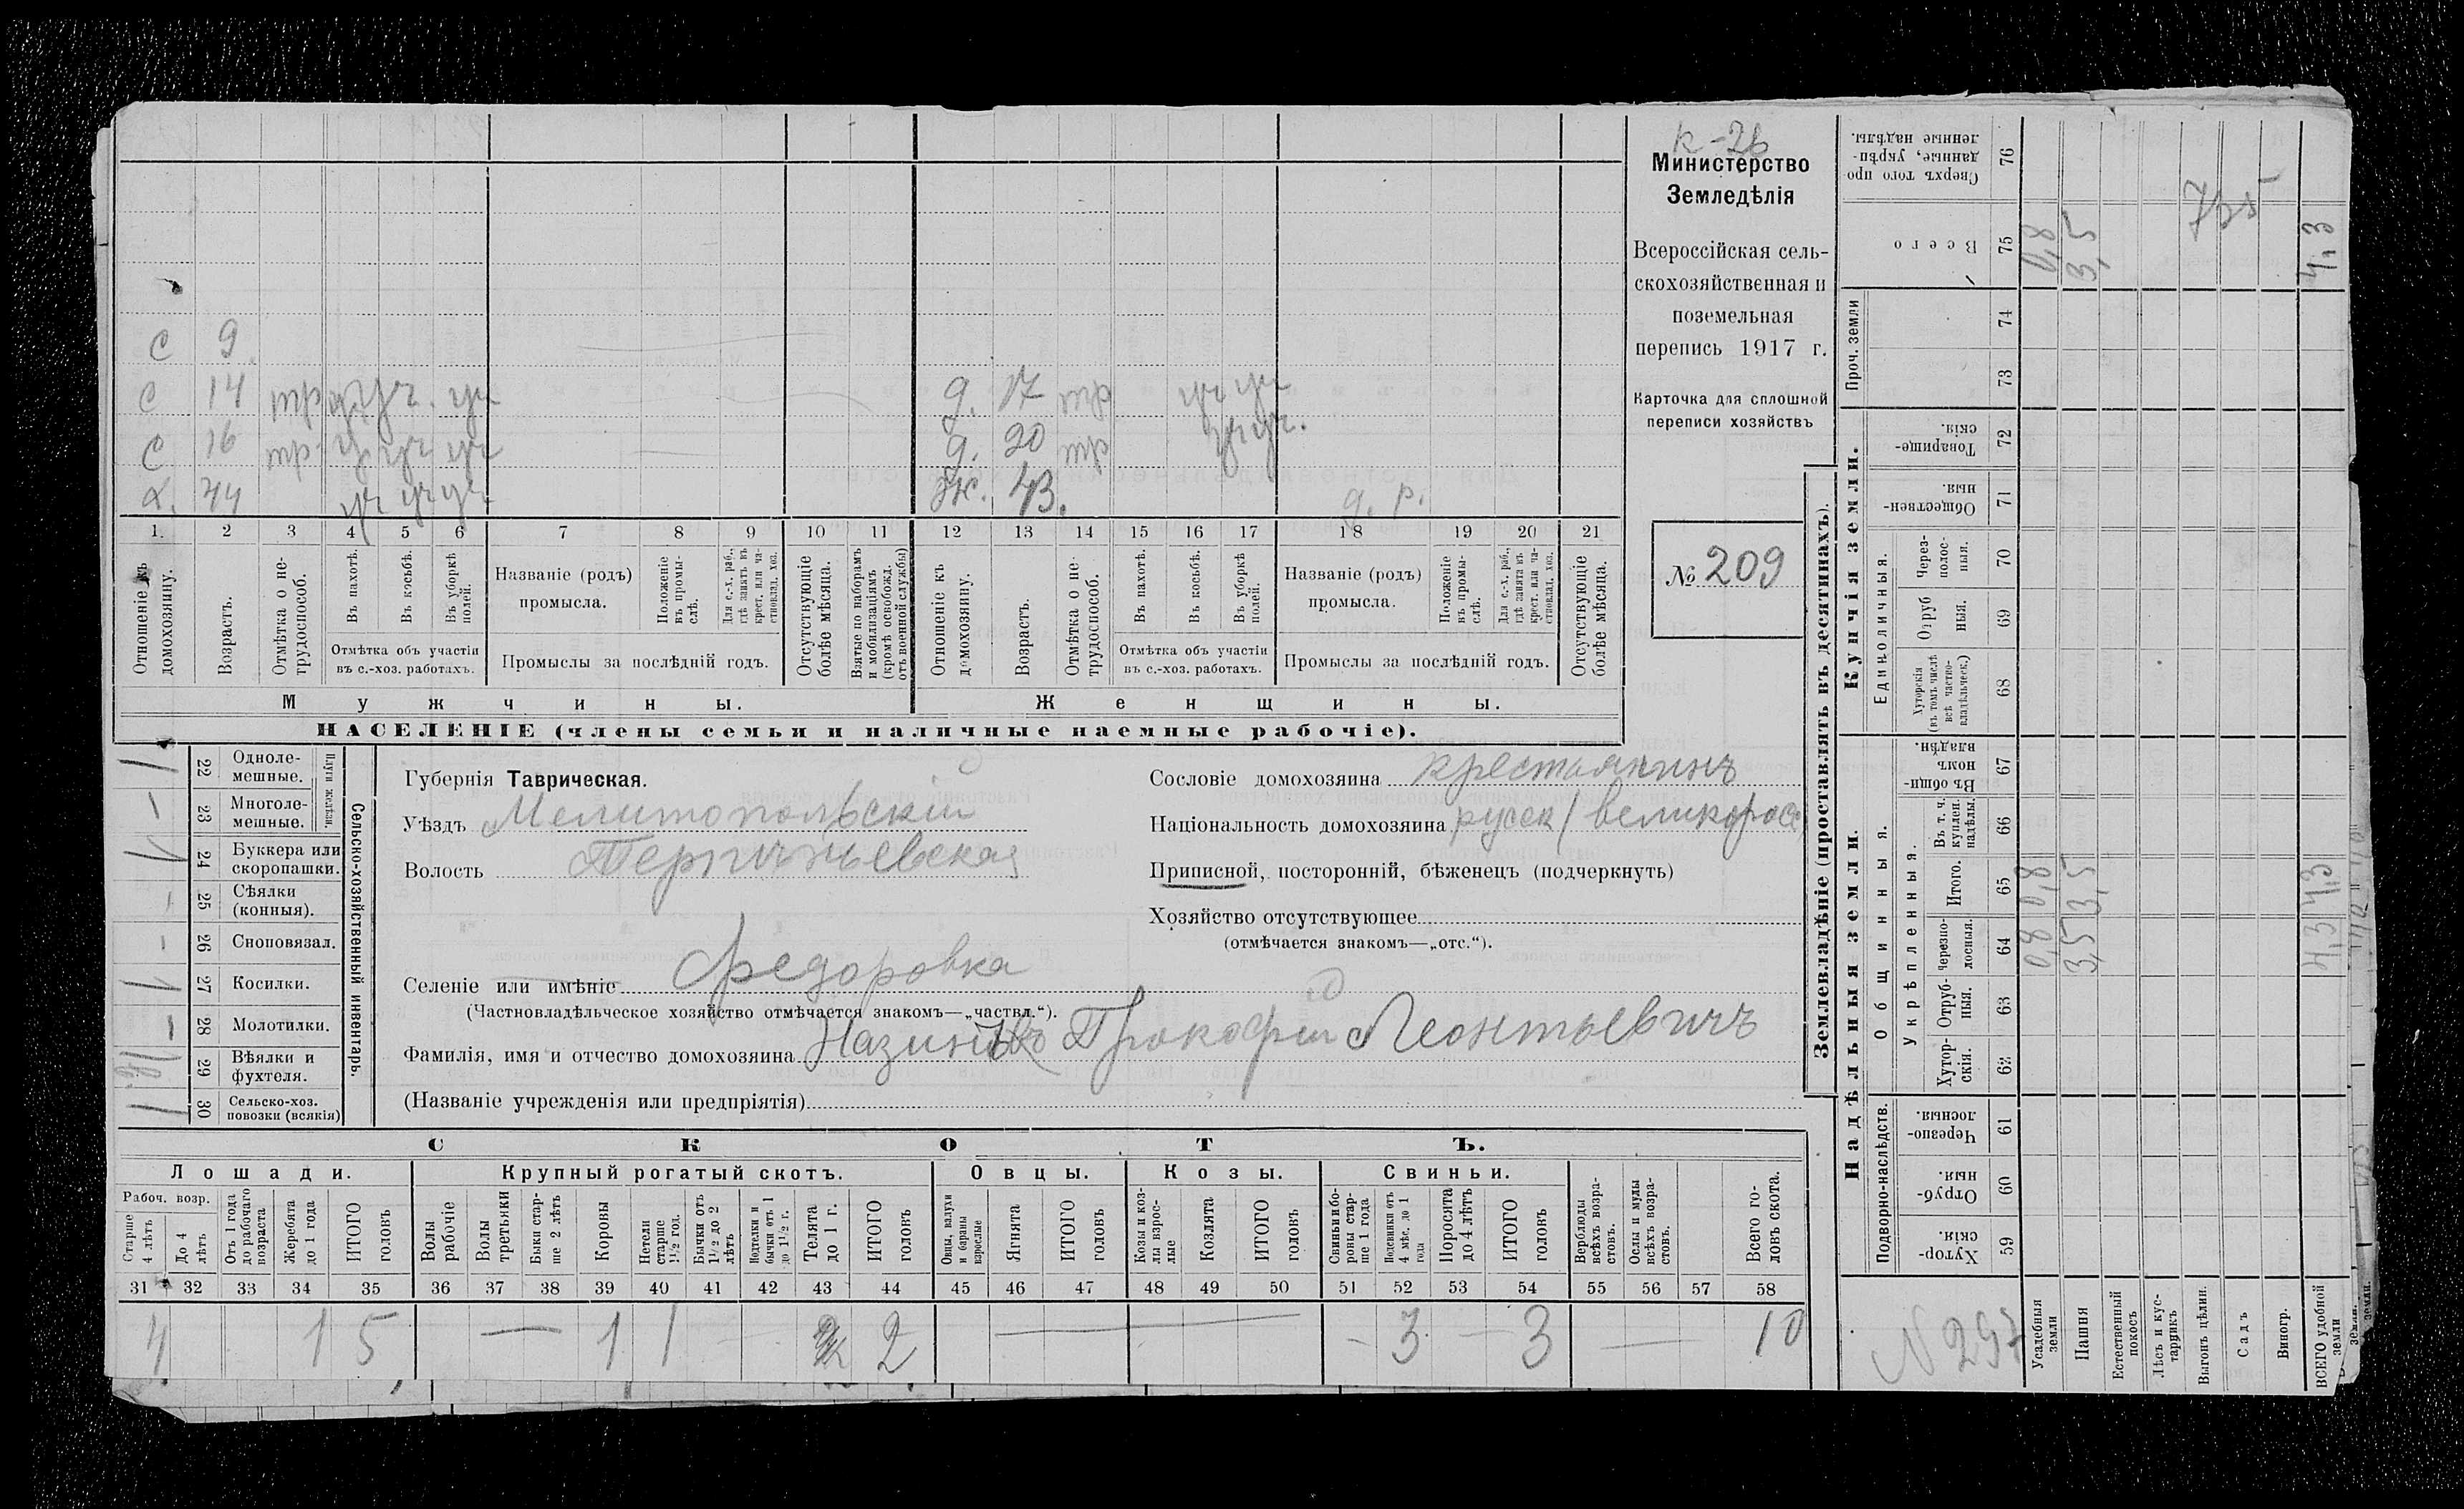 к-26
Министерство
Земледѣлія
Всероссійская сель-
скохозяйственная и
поземельная
перепись 1917 г.
Карточка для сплошной
переписи хозяйствъ
№ 209
с 9
с 14 тр уч уч. уч
с 16 тр. уч уч уч
х. 44 уч уч уч
д. 17 тр уч уч
д. 20 тр уч уч.
ж. 43. д. р.
1. 2 3 4 5 6 7 8 9 10 11 12 13 14 15 16 17 18 19 20 21
Отношеніе къ домохозяину.
Возрастъ.
Отмѣтка о не-трудоспособ.
Въ пахотѣ.
Въ косьбѣ.
Въ уборкѣ полей.
Отмѣтка объ участіи въ с.-хоз. работахъ.
Названіе (родъ) промысла.
Положеніе въ промы-слѣ.
Для с.-х. раб., гдѣ занятъ въ крест. или ча-стновлад. хоз.
Промыслы за послѣдній годъ.
Отсутствующіе болѣе мѣсяца.
Взятые по наборамъ и мобилизаціямъ (кромѣ освобожд. отъ военной службы)
Отношеніе къ домохозяину.
Возрастъ.
Отмѣтка о не-трудоспособ.
Въ пахотѣ.
Въ косьбѣ.
Въ уборкѣ полей.
Отмѣтка объ участіи въ с.-хоз. работахъ.
Названіе (родъ) промысла.
Положеніе въ промы-слѣ.
Для с.-х. раб., гдѣ занята въ крест. или ча-стновлад. хоз.
Промыслы за послѣдній годъ.
Отсутствующіе болѣе мѣсяца.
Мужчины.
Женщины.
НАСЕЛЕНІЕ (члены семьи и наличные наемные рабочіе).
Сельско-хозяйственный инвентарь.
Плуги желѣзн.
22 Одноле-мешные. 1
23 Многоле-мешные. –
24 Буккера или скоропашки. 1
25 Сѣялки (конныя). –
26 Сноповязал. –
27 Косилки. 1
28 Молотилки. –
29 Вѣялки и фухтеля.
30 Сельско-хоз. повозки (всякія) 1
Губернія Таврическая.
Уѣздъ Мелитопольскій
Волость Терпиньевская
Селеніе или имѣніе Федоровка
(Частновладѣльческое хозяйство отмѣчается знакомъ—„частвл.“).
Фамилія, имя и отчество домохозяина Прокофій Леонтьевичъ
(Названіе учрежденія или предпріятія)
Сословіе домохозяина крестьянинъ
Національность домохозяина русск / великоросс
Приписной, посторонній, бѣженецъ (подчеркнуть)
Хозяйство отсутствующее
(отмѣчается знакомъ—„отс.“).
СКОТЪ.
Лошади. Крупный рогатый скотъ. Овцы. Козы. Свиньи.
Рабоч. возр.
Старше 4 лѣтъ
До 4 лѣтъ
Отъ 1 года до рабочаго возраста
Жеребята до 1 года
ИТОГО головъ
Волы рабочіе
Волы третьяки
Быки стар-ше 2 лѣтъ
Коровы
Нетели старше 1½ год.
Бычки отъ 1½ до 2 лѣтъ
Подтелки и бычки отъ 1 до 1½ г.
Телята до 1 г.
ИТОГО головъ
Овцы, валухи и бараны взрослые
Ягнята
ИТОГО головъ
Козы и коз-лы взрос-лые
Козлята
ИТОГО головъ
Свиньи и бо-ровы стар-ше 1 года
Подсвинки отъ 4 мѣс. до 1 года
Поросята до 4 лѣтъ
ИТОГО головъ
Верблюды всѣхъ возра-стовъ.
Ослы и мулы всѣхъ возра-стовъ.
Всего го-ловъ скота.
31 32 33 34 35 36 37 38 39 40 41 42 43 44 45 46 47 48 49 50 51 52 53 54 55 56 57 58
4 1 5 — 1 1 2 — – 3 – 3 — 10
Землевладѣніе (проставлять въ десятинахъ).
Надѣльныя земли.
Купчія земли.
Проч. земли
Подворно-наслѣдств.
Общинныя.
Укрѣпленныя.
Единоличныя.
59 Хутор-скія.
60 Отруб-ныя.
61 Черезпо-лосныя.
62 Хутор-скія.
63 Отруб-ныя.
64 Черезпо-лосныя.
65 Итого.
66 Въ т. ч. куплен. надѣлы.
67 Въ общи-номъ владѣн.
68 Хуторскія (въ томъ числѣ всѣ частно-владѣльческ.)
69 Отруб ныя.
70 Через-полос-ныя.
71 Обществен-ныя.
72 Товарище-скія.
73
74
75 Всего
76 Сверхъ того про данные, укрѣп-ленные надѣлы.
Усадебныя земли 0,8 0,8 0,8
Пашня 3,5 3,5 3,5
Естественный покосъ
Лѣсъ и кус-тарникъ
Выгонъ цѣлин.
Садъ
Виногр.
ВСЕГО удобной земли 4,3 4,3 4,3
735
N 297